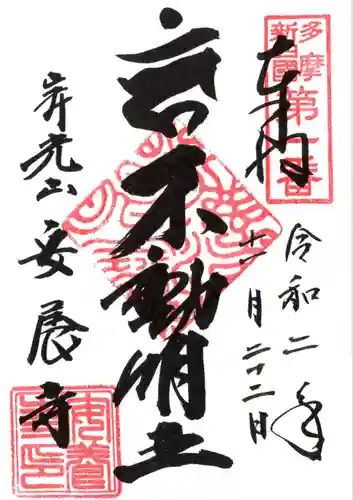 多摩
新四國
第一番
奉納
不動明王
令和二年
十一月二十二日
井光山安養寺